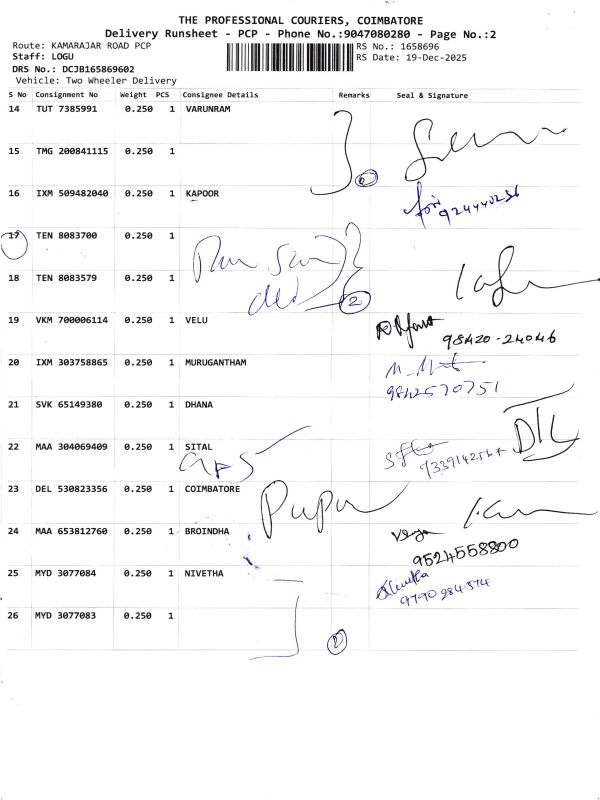 THE PROFESSIONAL COURIERS, COIMBATORE
Delivery Runsheet - PCP - Phone No.:9047080280 - Page No.:2
Route: KAMARAJAR ROAD PCP
Staff: LOGU
DRS No.: DCJB165869602
Vehicle: Two Wheeler Delivery
RS No.: 1658696
RS Date: 19-Dec-2025
S No Consignment No Weight PCS Consignee Details Remarks Seal & Signature
14 TUT 7385991 0.250 1 VARUNRAM
15 TMG 200841115 0.250 1
16 IXM 509482040 0.250 1 KAPOOR
17 TEN 8083700 0.250 1
18 TEN 8083579 0.250 1
2
19 VKM 700006114 0.250 1 VELU
98420-24046
20 IXM 303758865 0.250 1 MURUGANTHAM
9842570751
21 SVK 65149380 0.250 1 DHANA
22 MAA 304069409 0.250 1 SITAL
23 DEL 530823356 0.250 1 COIMBATORE
24 MAA 653812760 0.250 1 BROINDHA
9524558800
25 MYD 3077084 0.250 1 NIVETHA
9790284574
26 MYD 3077083 0.250 1
2